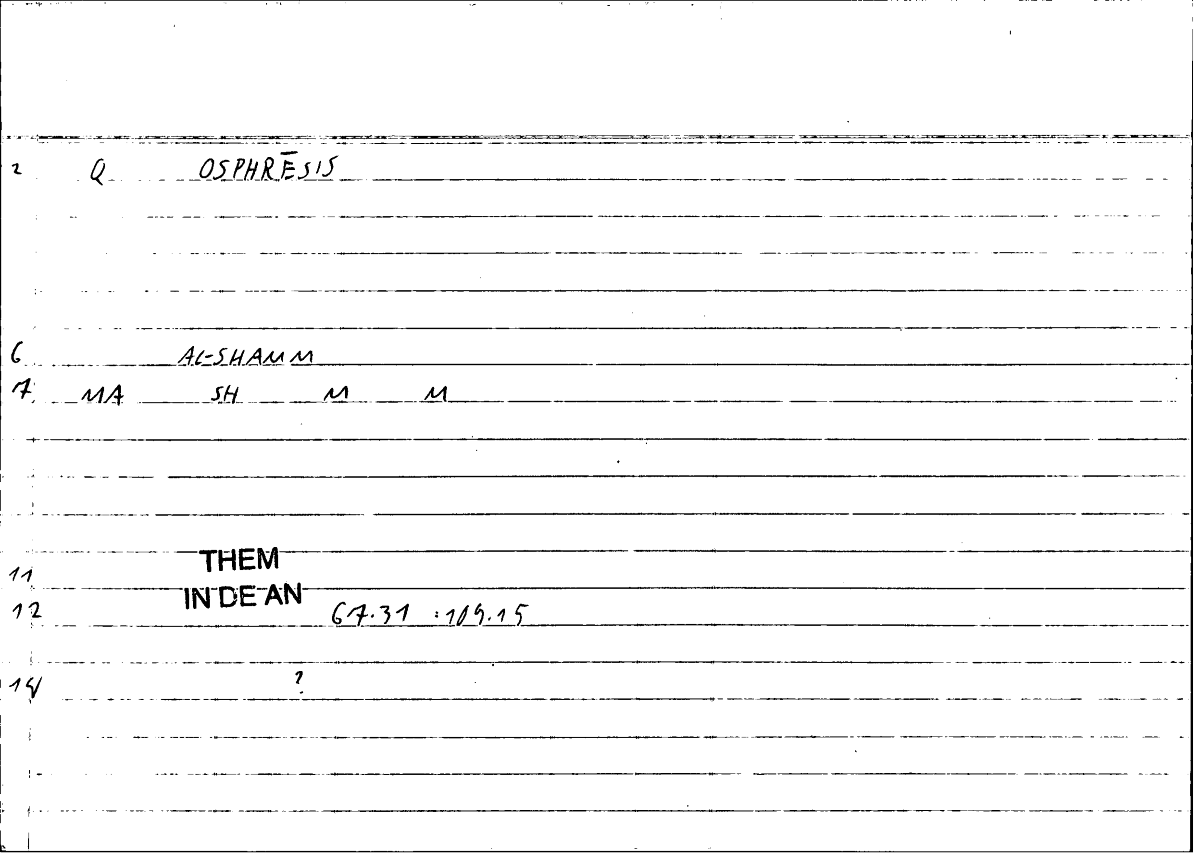 2 Q OSPHRĒSIS
6 AL-SHAMM
7 MA SH M M
THEM
11
IN DE AN
12 67.31 :109.15
14 ?